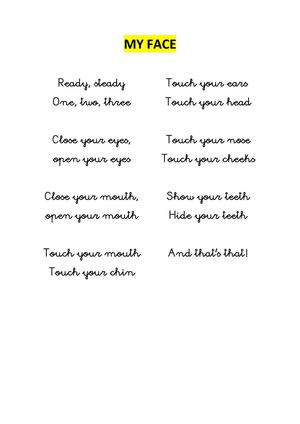 MY FACE
Ready, steady
One, two, three
Close your eyes,
open your eyes
Close your mouth,
open your mouth
Touch your mouth
Touch your chin
Touch your ears
Touch your head
Touch your nose
Touch your cheeks
Show your teeth
Hide your teeth
And that's that!